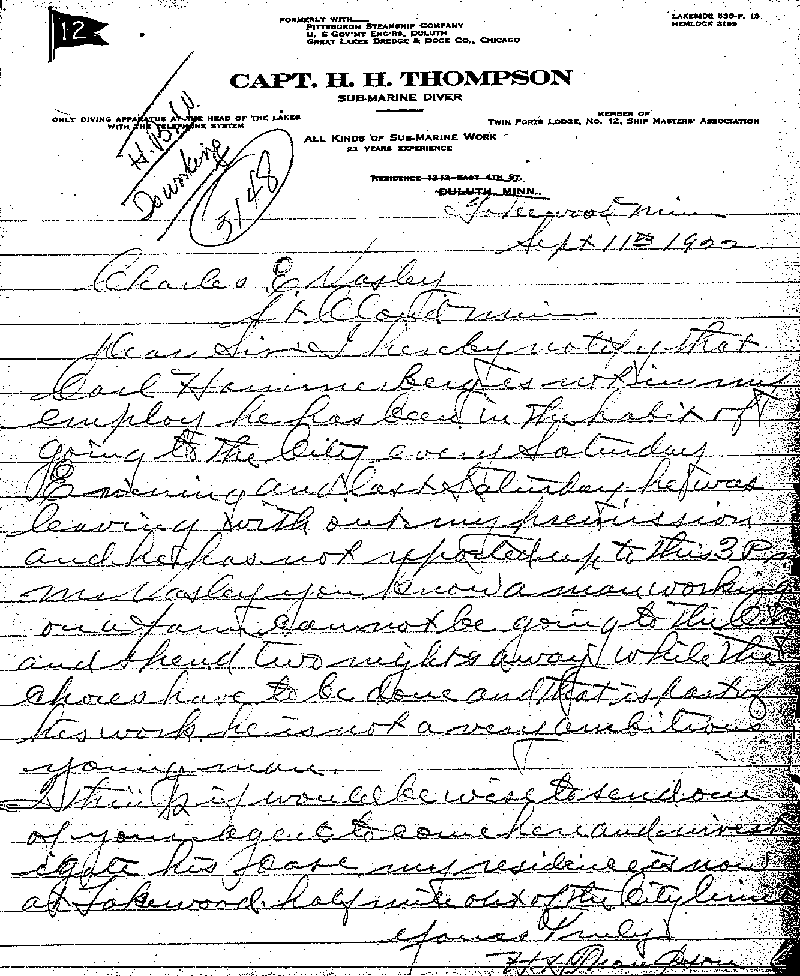 12
FORMERLY WITH
PITTSBURGH STEAMSHIP COMPANY
U. S GOV'MT ENG'RS, DULUTH
GREAT LAKES DREDGE & DOCK CO., CHICAGO
LAKESIDE 539-F. 13
HEMLOCK
CAPT. H. H. THOMPSON
SUB-MARINE DIVER
ONLY DIVING APPARATUS AT THE HEAD OF THE LAKES
WITH THE TELEPHONE SYSTEM
MEMBER OF
TWIN PORTS LODGE, NO. 12, SHIP MASTERS' ASSOCIATION
ALL KINDS OF SUB-MARINE WORK
21 YEARS EXPERIENCE
RESIDENCE 1312 EAST 4TH ST.
DULUTH, MINN.
5148
Lakewood Minn
Sept 11th 1922
Charles E Vasley
St Cloud Minn
Dear Sir I hereby notify that
Carl Hammerberg is not in my
employ he has been in the habit of
going to the City every Saturday
Evening and last Saturday he was
leaving with out my premission
and he has not reported up to this 3 Pm
Mr Vasley you know a man working
on a farm cannot be going to the City
and spend two nights away while the
chores have to be done and that is part of
his work he is not a very ambitious
young man.
I think it would be wise to send one
of your agent to come here and invest
igate his case my residence is now
at Lakewood half mile out of the City limes
Yours Truly
H.H. Thompson